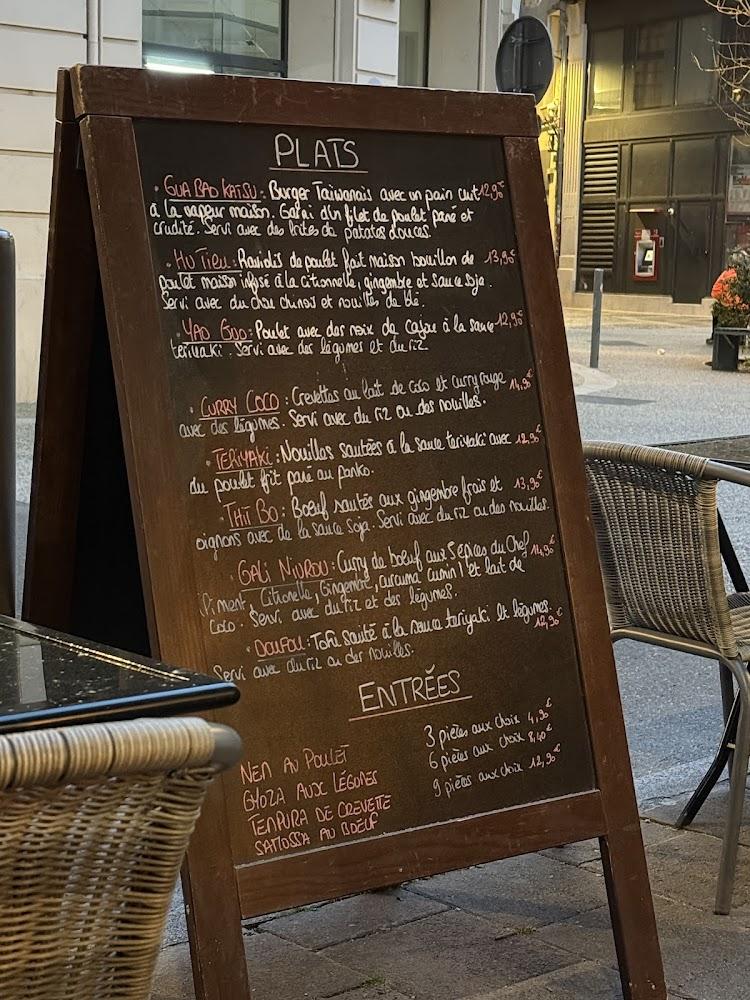 PLATS
• GUA BAO KATSU : Burger Taiwanais avec un pain cuit 12,90€
à la vapeur maison. Garni d'un filet de poulet pané et
crudité. Servi avec des frites de patates douces.
• HU TIEU : Raviolis de poulet fait maison bouillon de 13,90€
poulet maison infusé à la citronnelle, gingembre et sauce soja.
Servi avec du chou chinois et nouilles de blé.
• YAO GUO : Poulet avec des noix de cajou à la sauce 12,90€
teriyaki. Servi avec des légumes et du riz
• CURRY COCO : Crevettes au lait de coco et curry rouge 14,90€
avec des légumes. Servi avec du riz ou des nouilles.
• TERIYAKI : Nouilles sautées à la sauce teriyaki avec 12,90€
du poulet frit pané au panko.
• THIT BO : Boeuf sautés aux gingembre frais et 13,90€
oignons avec de la sauce soja. Servi avec du riz ou des nouilles.
• GALI NIUROU : Curry de boeuf aux 5 épices du Chef 14,90€
Piment, Citronelle, Gingembre, curcuma cumin ! et lait de
coco. Servi avec du riz et des légumes.
• DOUFOU : Tofu sauté à la sauce teriyaki et légumes. 12,90€
Servi avec du riz ou des nouilles.
ENTRÉES
NEM AU POULET
GYOZA AUX LÉGUMES
TEMPURA DE CREVETTE
SAMOSSA AU BOEUF
3 pièces aux choix 4,90€
6 pièces aux choix 8,40€
9 pièces aux choix 12,90€